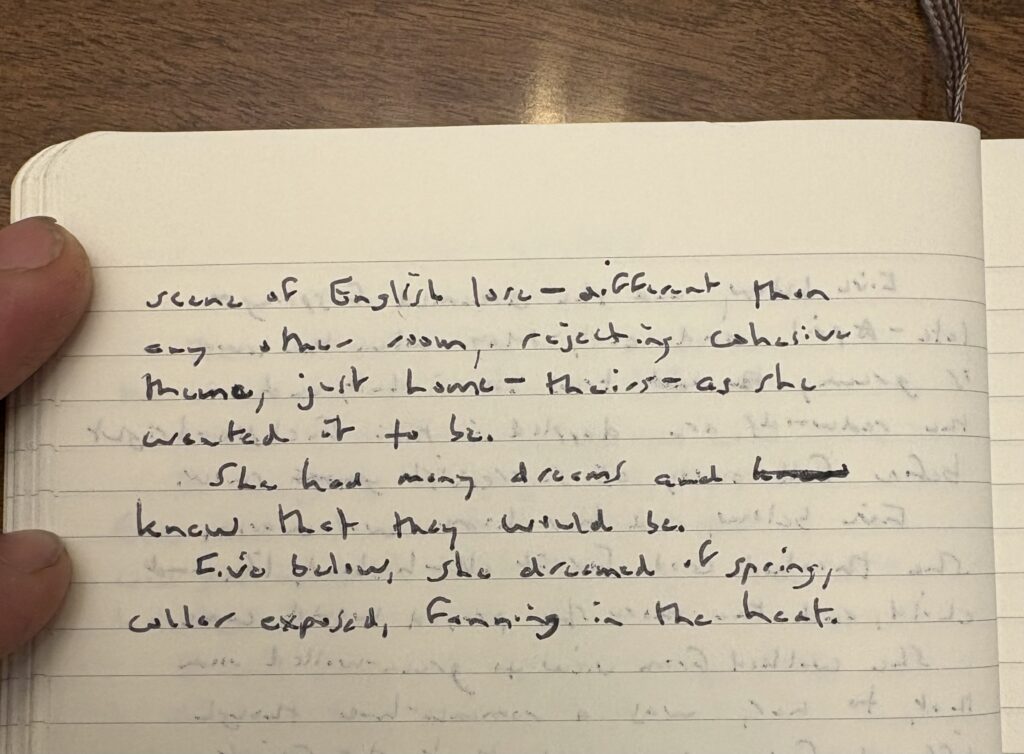 scene of English lore - different than
any other room, rejecting cohesive
theme, just home - theirs - as she
wanted it to be.
She had many dreams and
knew that they would be.
Five below, she dreamed of spring,
collar exposed, fanning in the heat.